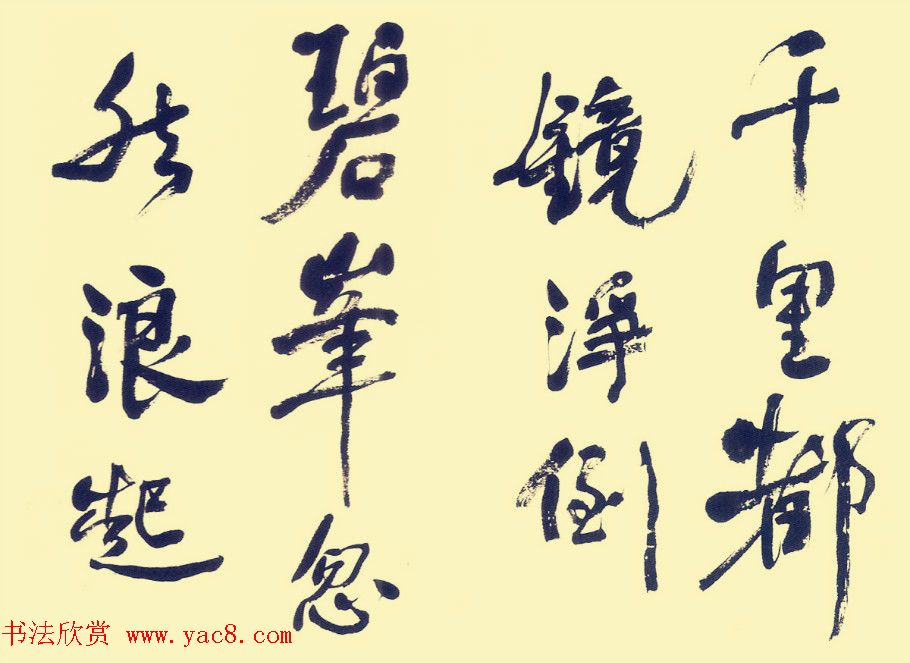 千里都
鏡淨倒
碧峯忽
然浪起
书法欣赏 www.yac8.com